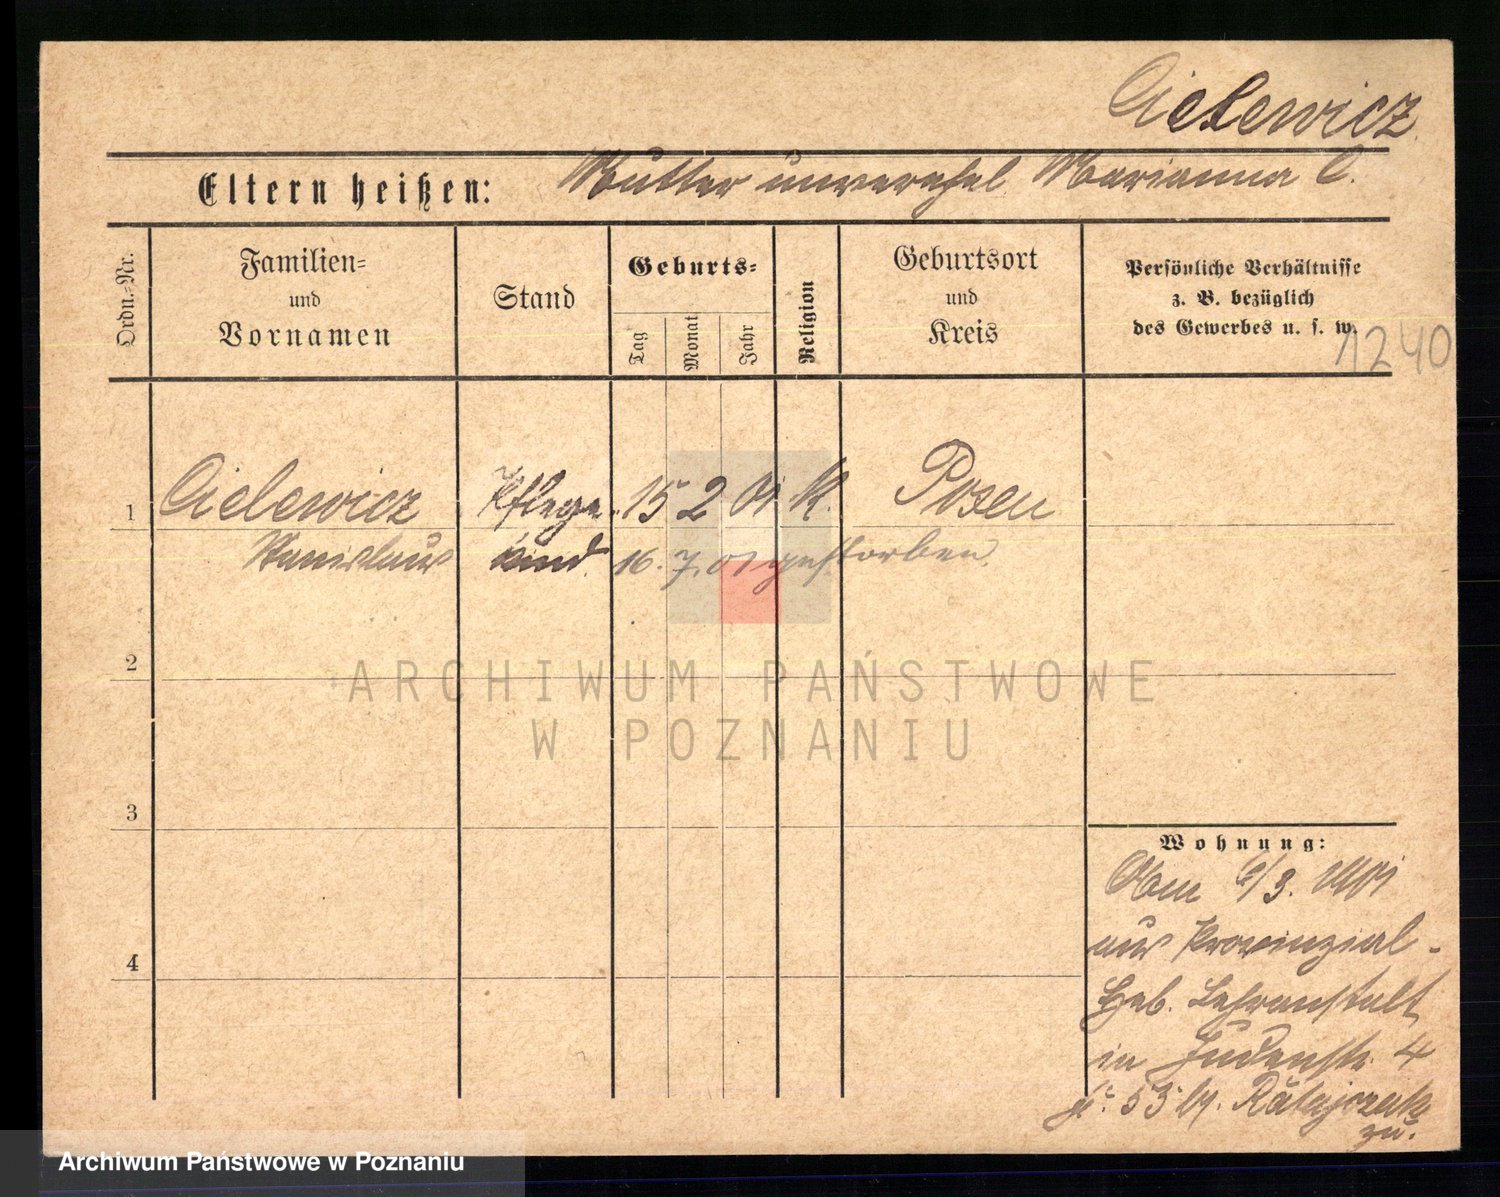 Cielewicz
Eltern heißen: Mutter unverehel Marianna C.
Ordn.-Nr.
Familien-
und
Vornamen
Stand
Geburts-
Tag
Monat
Jahr
Religion
Geburtsort
und
Kreis
Persönliche Verhältnisse
z. B. bezüglich
des Gewerbes u. s. w.
1240
1 Cielewicz Pflege- 15 2 01 K. Posen
Stanislaus kind 16. 7. 01 gestorben.
2
ARCHIWUM PAŃSTWOWE
W POZNANIU
3
4
Wohnung:
6/3.
aus Provinzial-
Heb. Lehranstalt
in Judenstr. 4
53 Ratajczak
zu.
Archiwum Państwowe w Poznaniu